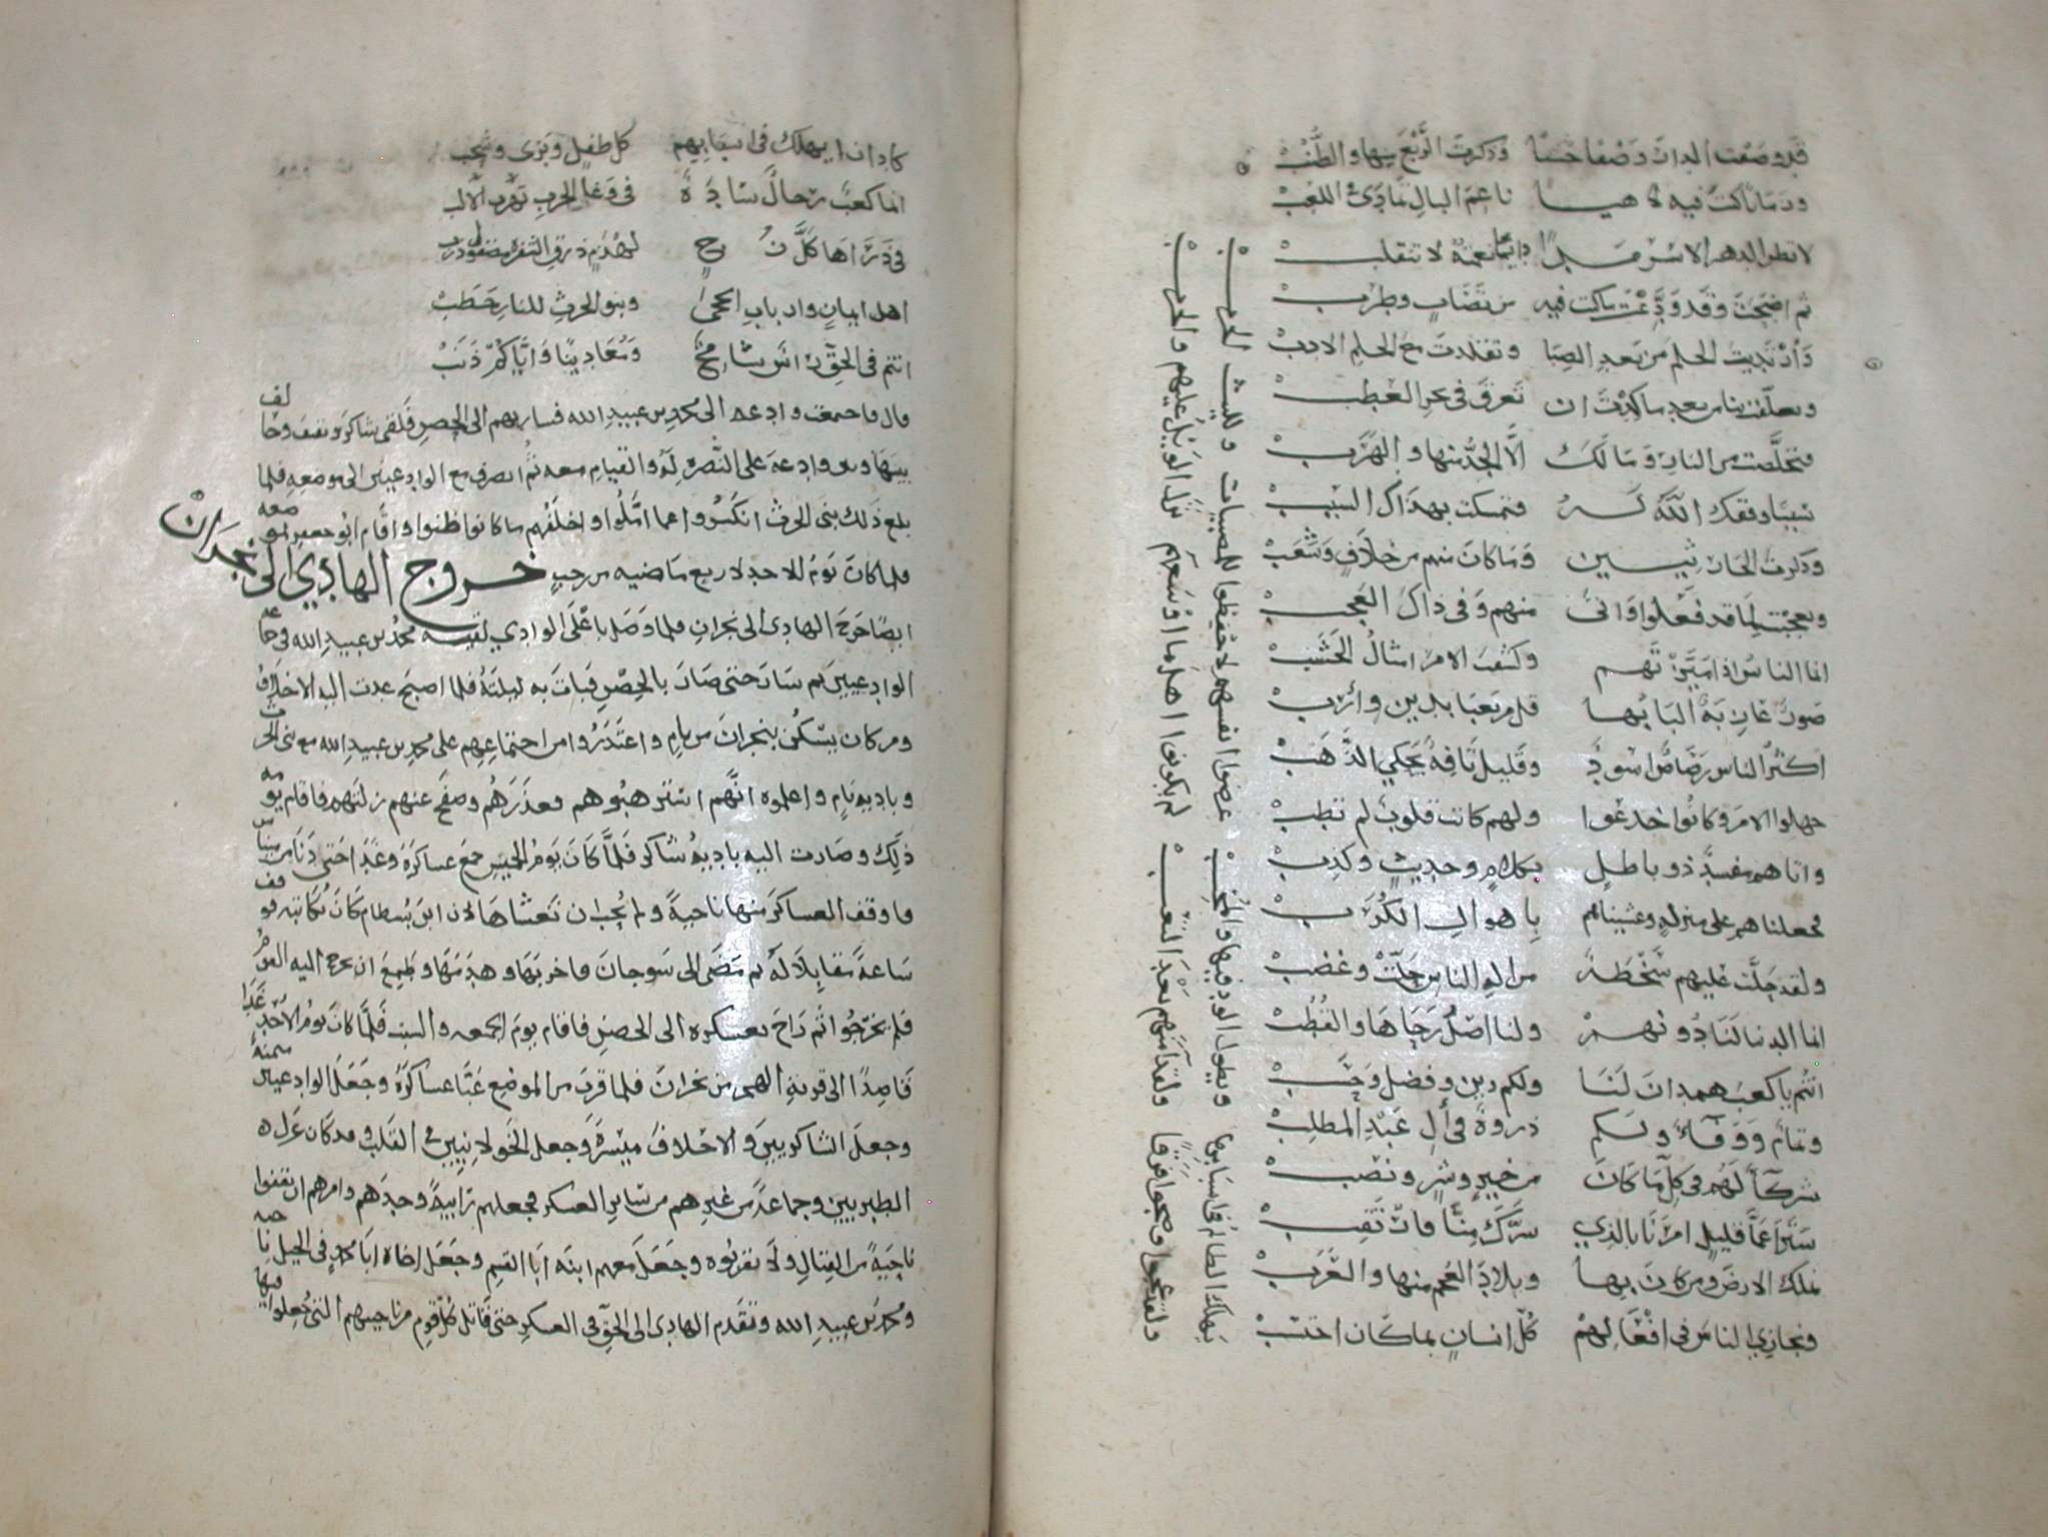 قد وصفت الدار وصفا حسنا وذكرت الربع منها والطنب
وزمانا كنت فيه لاهيا ناعم البال تمادى اللعب
لا تظن الدهر الا سرمدا دائما نعمة لا تنقلب
ثم اضحت وقد ودعت ماكنت فيه من تصاب وطرب
وأرتديت الحلم من بعد الصبا وتقلدت مع الحلم الادب
وتعلقت بنا من بعد ما كدت ان تغرق فى بحر العطب
فتخلصت من النار وما لك الا الجد منها والهرب
سببا وفقك الله له فتمسكت بهذاك السبب
وذكرت الحارثيين وما كان منهم من خلاف وشغب
وتعجبت لما قد فعلوا وانى منهم وفى ذاك العجب
انما الناس اذا ميزتهم وكشفت الامر امثال الخشب
صور غاربة البابها قل من يعبا بدين وأرب
اكثر الناس رصاص اسود وقليل تافه يحكي الذهب
جهلوا الامر وكانوا خدعوا ولهم كانت قلوب لم تطب
واتاهم مفسد ذو باطل بكلام وحديث وكذب
فجعلناهم على منزلة وغشيناهم باهوال الكرب
ولقد حلت عليهم سخطة من اله الناس حلت وغضب
انما الدنيا لنا دونهم ولنا اصل رحاها والقطب
انتم يا كعب همدان لنا ولكم دين وفضل وحسب
وتمام ووفاء ولكم ذروة فى أل عبد المطلب
شركآ لهم فى كل ما كان من خير وشر ونصب
سترا عما قليل امرنا بالذي سرك منا فارتقب
نملك الارض ومن كان بها وبلاد العجم منها والعرب
ونجازي الناس فى افعالهم كل انسان بما كان اكتسب
يهلك الظالم فى اسبابها ويطول الود فيها والمحب
عرضوا انفسهم لاحفظوا للمصيبات ولليث الحرب
ولقد نجوا وضجوا فرقا ولقد امنتهم بعد التعب
لم يكونوا اهل ما اوسعتهم نزل الويل عليهم والحرب
كاد ان يهلك فى اسبابهم كل طفل وبرى وشجب
انما كعب رجال سادة فى وغا الحرب
فى ذراها كل
اهل ايمان وارباب الحجى وبنو الحرث للنار حطب
انتم فى الحق راس شامخ ومعادينا واياكم ذنب
قال فاجتمعت وادعه الى محمد بن عبيد الله فسار بهم الى الحصن فلقى شاكر وثقيف وحالف
بينها وبين وادعة على النصرة له والقيام معه ثم انصرف مع الوادعيين الى موضعه فلما
بلغ ذلك بنى الحرث انكسروا عما املوا واخلفهم ما كانوا ظنوا واقام ابو جعفر بموضعه
فلما كان يوم الاحد لاربع ماضيه من رجب خروج الهادي الى نجران
ايضا خرج الهادى الى نجران فلما وصل باعلى الوادي لقيه محمد بن عبيد الله فى جماعة
الوادعيين ثم سار حتى صار بالحصن فبات به ليلته فلما اصبح غدت اليه الاحلاف
ومن كان يسكن بنجران من يام واعتذروا من اجتماعهم على محمد بن عبيد الله مع بنى الحرث
وبادية يام واعلموه انهم استرهبوهم فعذرهم وصفح عنهم زلتهم فاقام يومه
ذلك وصارت اليه بادية شاكر فلما كان يوم الخميس جمع عساكره وغدا حتى دنا من ميناس
فاوقف العساكر منها ناحية ولم يحب ان تغشاها لان ابن بسطام كان يكاتبه فوقف
ساعة مقابلا له ثم مضى الى سوحان فاخربها وهدمها وطمع ان يخرج اليه القوم
فلم يخرجوا ثم راح بعسكره الى الحصن فاقام يوم الجمعه والسبت فلما كان يوم الاحد غدا
قاصدا الى قرية الهجر من نجران فلما قرب من الموضع عبا عساكره وجعل الوادعيين ميمنة
وجعل الشاكريين والاحلاف ميسرة وجعل الخولانيين فى القلب وقد كان عزل
الطبريين وجماعة من غيرهم من سائر العسكر فجعلهم رابية وحدهم وامرهم ان يقفوا
ناحية من القتال ولا يقربوه وجعل معهم ابنه ابا القسم وجعل اخاه ابا محمد فى الخيل ناحيه
ومحمد بن عبيد الله وتقدم الهادى الى الحق فى العسكر حتى قاتل كل قوم من ناحيتهم التى جعلوا فيها